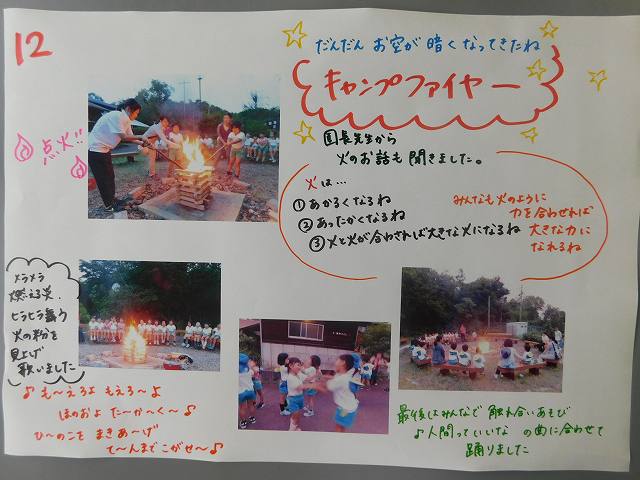 12
だんだん お空が 暗く なってきたね
キャンプファイヤー
点火!!
園長先生から
火のお話も 聞きました。
火は…
①あかるくなるね
②あったかくなるね
③火と火が合わされば大きな火になるね
みんなも火のように
力を合わせれば
大きな力に
なれるね
メラメラ
燃える炎、
ヒラヒラ舞う
火の粉を
見上げ
歌いました
♪も〜えろよ もえろ〜よ
ほのおよ た〜か〜く〜♪
ひ〜のこを まきあ〜げ
て〜んまで こがせ〜♪
最後はみんなで 触れ合いあそび
♪人間っていいな の曲に合わせて
踊りました